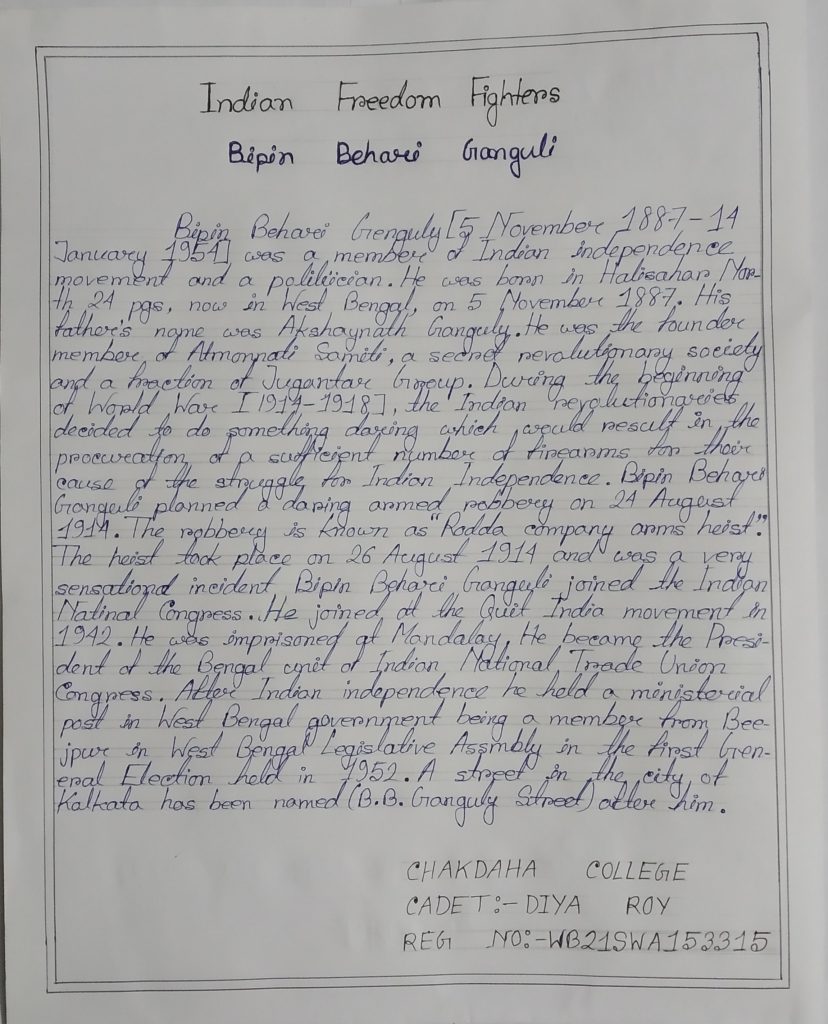 Indian Freedom Fighters
Bipin Behari Ganguli
Bipin Behari Genguly [5 November 1887-14
January 1954] was a member of Indian independence
movement and a politician. He was born in Halisahar, Nor-
th 24 pgs, now in West Bengal, on 5 November 1887. His
father's name was Akshaynath Ganguly. He was the founder
member of Atmonnati Samiti, a secret revolutionary society
and a fraction of Jugantar Group. During the beginning
of World War I [1914-1918], the Indian revolutionaries
decided to do something daring which would result in the
procuration of a sufficient number of firearms for their
cause of the struggle for Indian Independence. Bipin Behari
Ganguli planned a daring armed robbery on 24 August
1914. The robbery is known as "Rodda company arms heist".
The heist took place on 26 August 1914 and was a very
sensational incident Bipin Behari Ganguli joined the Indian
Natinal Congress. He joined at the Quit India movement in
1942. He was imprisoned at Mandalay. He became the Presi-
dent of the Bengal unit of Indian National Trade Union
Congress. After Indian independence he held a ministerial
post in West Bengal government being a member from Bee-
jpur in West Bengal Legislative Assmbly in the first Gen-
eral Election held in 1952. A street in the city of
Kalkata has been named (B.B. Ganguly Street) after him.
CHAKDAHA COLLEGE
CADET:- DIYA ROY
REG NO:-WB21SWA153315